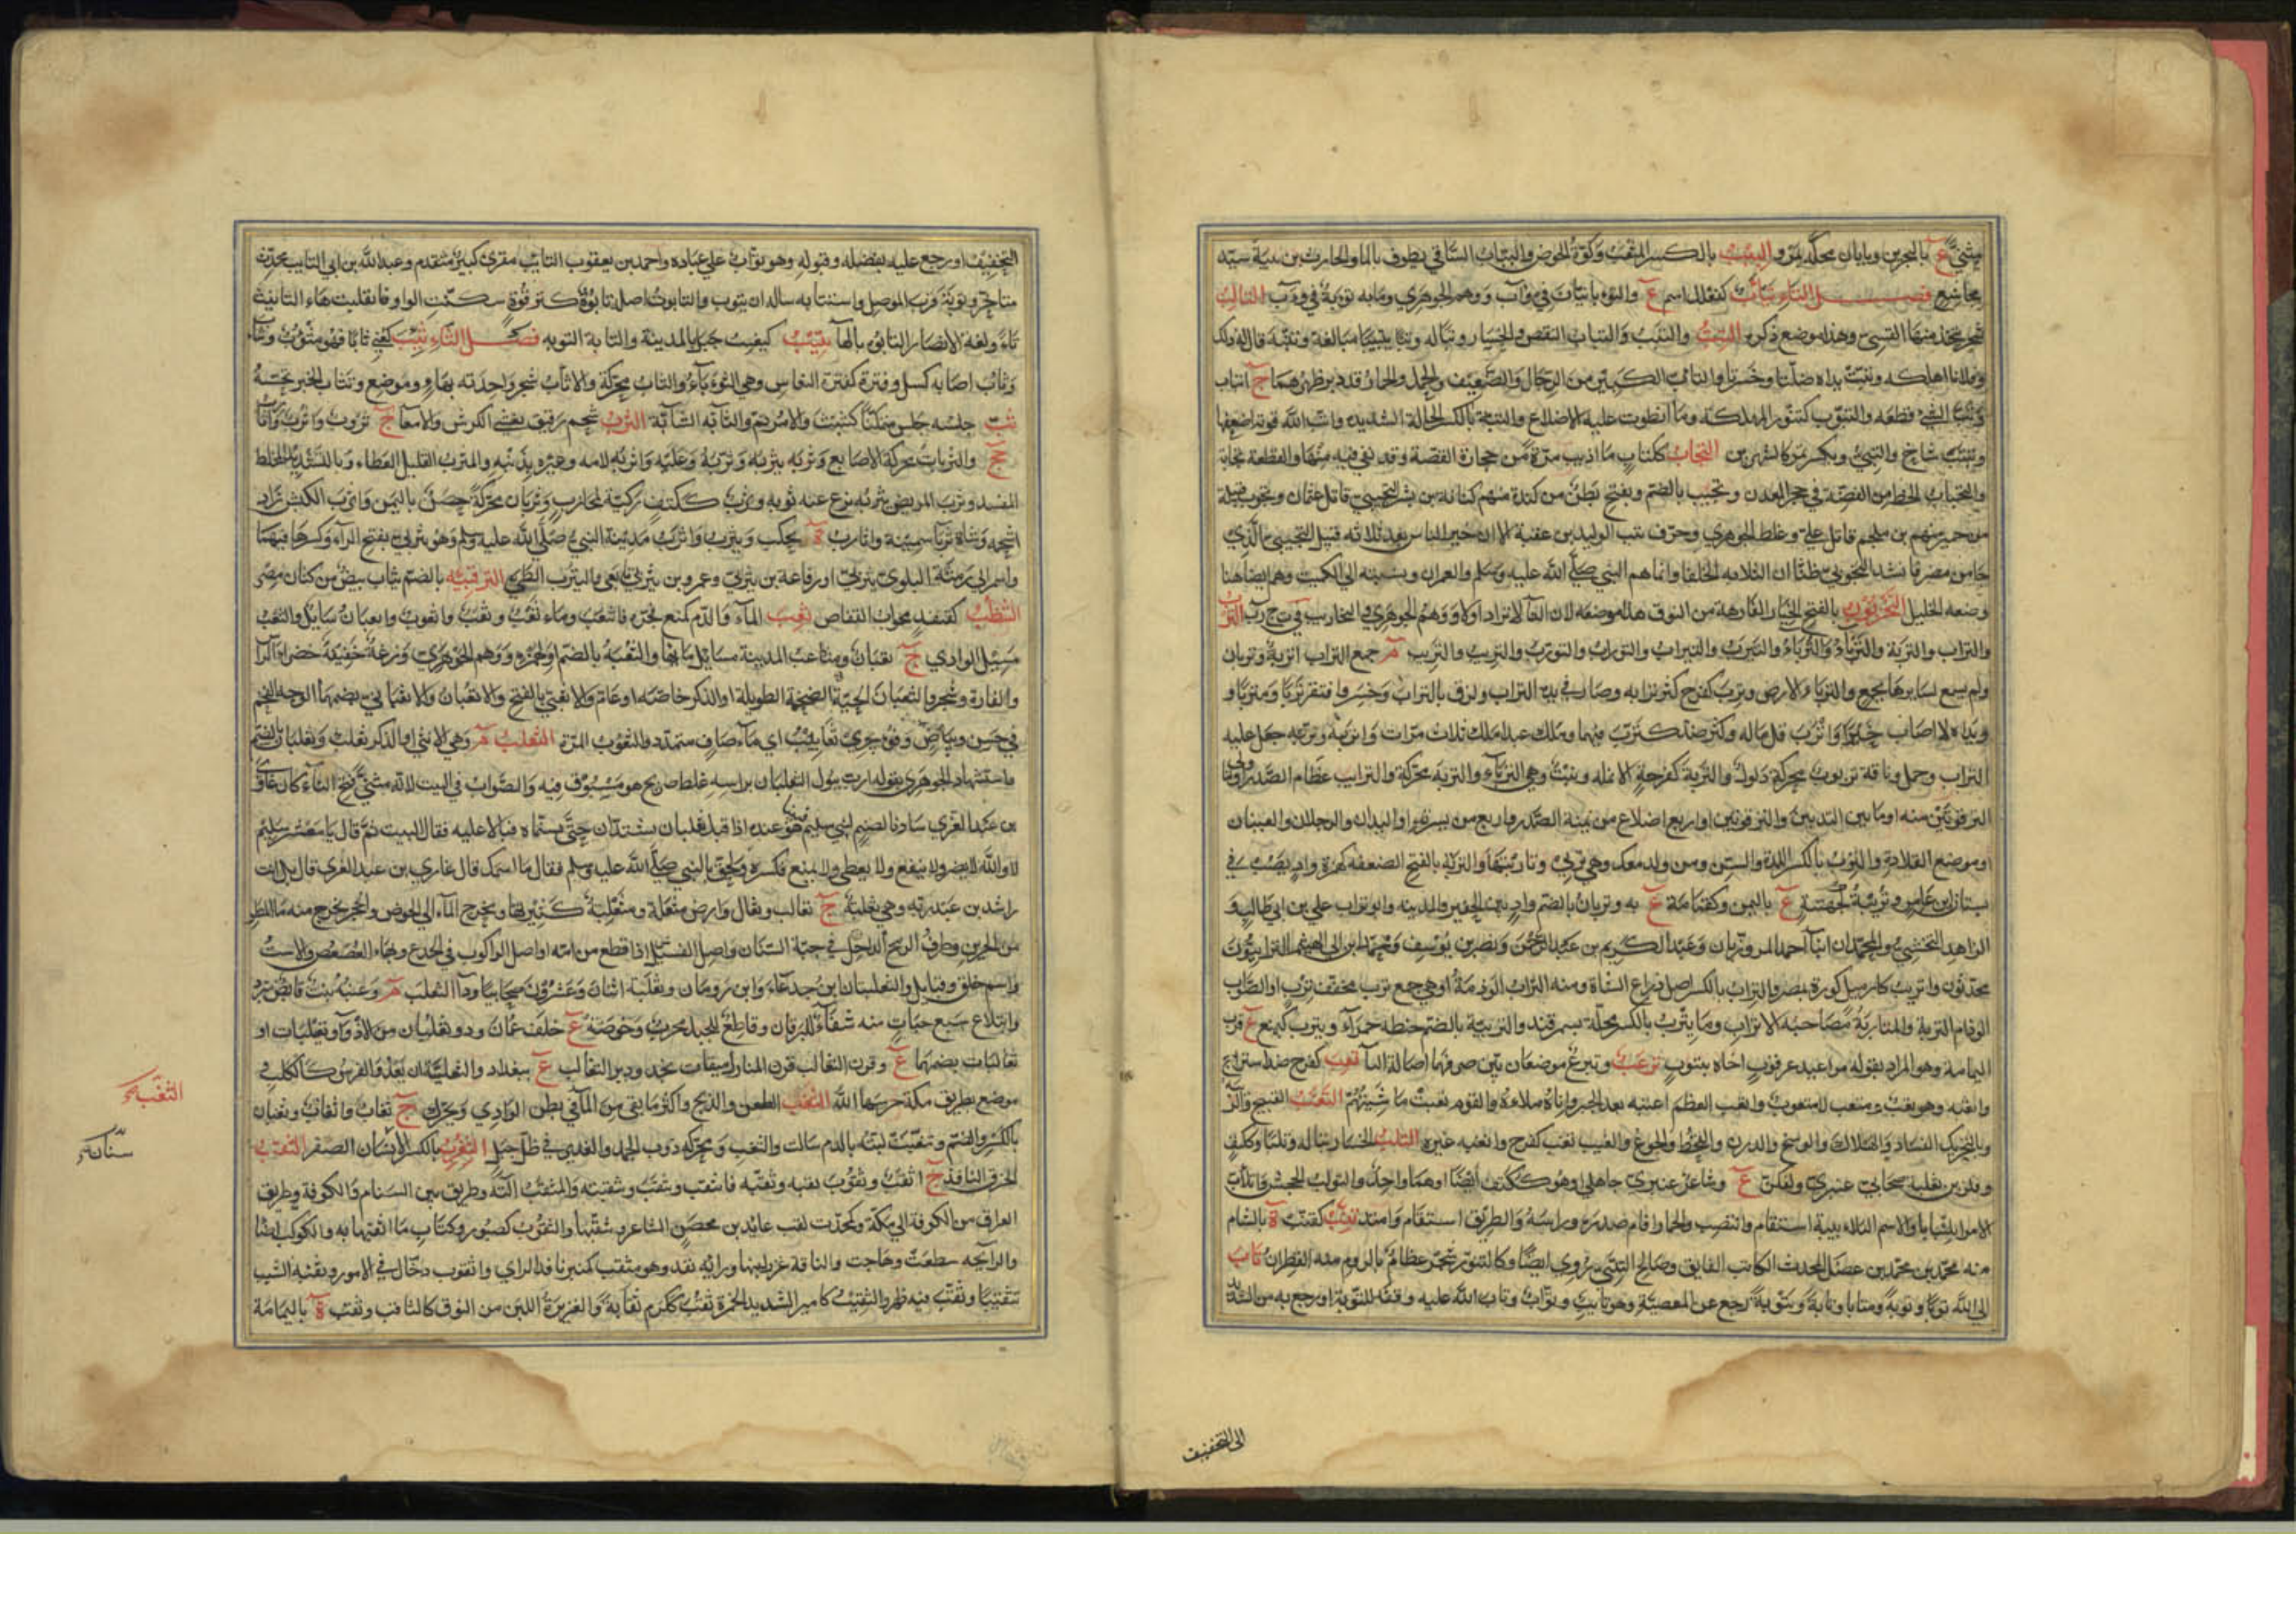 بالبحرين وبابان محلة بمرو والبِيْبُ بالكسر المثقب وكوّة الحوض والبيّاب السّاقي يطوف بالماء والحارث بن بيبة سيّد
مجاشع فصل التاء تيأب كفعلل اسم ع والتوءبانيان في وأب ووهم الجوهري وما به توبة في وأب التألب
شجر يتخذ منها القسيّ وهذا موضع ذكره التبّ والتبب والتباب النقص والخسار وتبا له وتبا تبيبا مبالغة وتببه قال له ذلك
وفلانا اهلكه وتبّت يداه ضلّتا وخسرتا والتابّ الكبير من الرجال والضعيف والجمل والحمار قد دبر ظهرهما ج اتباب
وتبّ الشيء قطعه والتبّوب كتنّور المهلكة وما انطوت عليه الاضلاع والتبة بالكسر الحالة الشديدة واتبّ الله قوته اضعفها
وتبتب شاخ والتبّيّ ويكسر تمر كالشهريز التجاب ككتاب ما اذيب مرّة من حجارة الفضة وقد بقي فيه منها والقطعة تجابة
والتجباب الخط من الفضّة في حجر المعدن وتجيب بالضم ويفتح بطن من كندة منهم كنانة بن بشر التجيبيّ قاتل عثمان وتجوب قبيلة
من حمير منهم بن ملجم قاتل علي وغلط الجوهري وحرّف بيت الوليد بن عقبة الا ان خير الناس بعد ثلاثة قتيل التجيبي الذي
جا من مصر فانشده التجوبي ظنّا ان الثلاثة الخلفا وانما هم النبي صلّى الله عليه وسلم والعمران ونسبته الى الكميت وهم ايضا هنا
وضعه الخليل التخربوت بالفتح الخيار الفارهة من النوق هذا موضعه لان التا لا تزاد اولا ووهم الجوهري التخاريب في خ ر ب الترب
والتراب والتربة والترباء والترباء والتيرب والتيراب والتوراب والتورب والتريب والتريب م جمع التراب اتربة وتربان
ولم يسمع لسايرها بجمع والترباء الارض وترب كفرح كثر ترابه وصار في يده التراب ولزق بالتراب وخسر وافتقر تربا ومتربا و
ويداه لا اصاب خيرا واترب قل ماله وكثر ضد كترّب فيهما وملك عبدا ملك ثلاث مرات واتربه وترّبه جعل عليه
التراب وجمل وناقة تربوت محركة ذلول والتربة كفرحة الانملة ونبت وهي الترباء والتربة محركة والترايب عظام الصدر او ما ولي
الترقوتين منه او ما بين الثديين والترقوتين او اربع اضلاع من يمنة الصدر واربع من يسرته او اليدان والرجلان والعينان
وموضع القلادة والترب بالكسر اللدة والسن ومن ولد معك وهي تربي وتاربتها والتربة بالفتح الضعفة كهمزة واد يصب في
بستان ابن عامر وتريبة كجهينة ع باليمن وكقمامة ع به وتربان بالضم واد بين الحفير والمدينة وابو تراب علي بن ابي طالب و
الزاهد النخشبي والمحمدان ابنا احمد المروزيان وعبد الكريم بن عبد الرحمن ونصر بن يوسف ومحمد بن ابي الهيثم الترابيون
محدثون واتريب كازميل كورة بمصر والتراب بالكسر اصل ذراع الشاة ومنه التراب الوذمة او هي جمع ترب مخفف ترب او الصواب
الوذام التربة والمتاربة مصاحبة الاتراب وماتيرب بالكسر محلة بسمرقند والتربية بالضم حنطة حمراء ويترب كيمنع ع قرب
اليمامة وهو المراد بقوله مواعيد عرقوب اخاه بيترب ترعب وتبرع موضعان بيّن صرفهما اصالة التا تعب كفرح ضد استراح
واتعبه وهو تعب ومتعب لا متعوب واتعب العظم اعتبه بعد الجبر واناءه ملأه والقوم تعبت ماشيتهم التغب القبيح والريبة
وبالتحريك الفساد والهلاك والوسخ والدرن والقحط والجوع والعيب تغب كفرح واتغبه غيره التلب الخسار تبا له وتلبا وككتف
وفلز بن ثعلبة صحابي عنبري وكفلز ع وشاعر عنبري جاهلي وهو ككتف ايضا او هما واحد والتولب الجحش واتلأب
الامر اتلئبابا والاسم التلأبيبة استقام وانتصب والحمار اقام صدره وراسه والطريق استقام وامتد تنب كقنب ة بالشام
منه محمد بن محمد بن عقيل المحدث الكاتب الفايق وصالح التنبي روي ايضا وكالتنور شجر عظام بالروم منه القطران تاب
الى الله توبا وتوبة ومتابا وتابة وتتوبة رجع عن المعصية وهو تايب وتواب وتاب الله عليه وفقه للتوبة او رجع به من التشديد
الى التخفيف
التخفيف او رجع عليه بفضله وقبوله وهو تواب على عباده واحمد بن يعقوب التايب مقري كبير متقدم وعبد الله بن ابي التايب محدث
متاخر وتوبة قرب الموصل واستتابه ساله ان يتوب والتابوت اصله تابوة كترقوة سكنت الواو فانقلبت هاء التانيث
تاء ولغة الانصار التابوه بالهاء يتيب كيغيب جبل بالمدينة والتابة التوبة فصل الثاء ثئب كعني ثأبا فهو مثؤوب وتثاءب
وتثأب اصابه كسل وفترة كفترة النعاس وهي الثؤباء والثأب محركة والاثأب شجر واحدته بهاء و وموضع وتثأب الخبر تجسسه
ثب جلس جلس متمكنا كثبثب والامر تم والثابة الشابة الثرب شحم رقيق يغشي الكرش والامعاء ج ثروب واثرب واثارب
جج والثربات محركة الاصابع وثربه يثربه وثرّبه وعليه واثربه لامه وعيره بذنبه والمثرب القليل العطاء وبالتشديد المخلط
المفسد وثرب المريض يثربه نزع عنه ثوبه وثرب ككتف ركية لمحارب وثربان محركة حصن باليمن واثرب الكبش زاد
شحمه وشاة ثربا سمينة واثارب ة بحلب ويثرب واثرب مدينة النبي صلى الله عليه وسلم وهو يثربي بفتح الراء وكسرها فيهما
واسم ابي رمثة البلوي يثربي او رفاعة بن يثربي وعمرو بن يثربي تابعي والتثريب الطي الثرقبية بالضم ثياب بيض من كتان مصر
الثظب كقنفذ مجواب القفاص ثعب الماء والدم كمنع فجره فانثعب وماء ثعب وثعب واثعوب واثعبان سايل والثعب
مسيل الوادي ج ثعبان ومثاعب المدينة مسايل مايها والثعبة بالضم او كهمزة ووهم الجوهري وزغة خبيثة خضراء الراس
والفارة وشجر والثعبان الحية الضخمة الطويلة او الذكر خاصة او عام والاثعبي بالفتح والاثعبان والاثعباني بضمهما الوجه الفخم
في حسن وبياض وفوه يجري ثعابيب اي ماء صاف متمدد والثعوب المرة الثعلب م وهي الانثى او الذكر ثعلب وثعلبان بالضم
واستشهاد الجوهري بقوله ارب يبول الثعلبان براسه غلط صريح هو مسبوق فيه والصواب في البيت لانه مثنى فتح الثاء كان غاوي
بن عبد العزي سادنا لصنم لبني سليم فبينا هو عنده اذ اقبل ثعلبان يشتدان حتى تسنماه فبالا عليه فقال البيت ثم قال يا معشر سليم
لا والله لا يضر ولا ينفع ولا يعطي ولا يمنع فكسره ولحق بالنبي صلى الله عليه وسلم فقال ما اسمك قال غاوي بن عبد العزي قال بل انت
راشد بن عبد ربه وهي ثعلبة ج ثعالب وثعال وارض مثعلة ومثعلبة كثيرتها ومخرج الماء الى الحوض والجحر يخرج منه ماء المطر
من الجرين وطرف الرمح الداخل في جبة السنان واصل الفسيل اذا قطع من امه او اصل الراكوب في الجذع وبهاء العصعص والاست
واسم خلق وقبايل والثعلبتان ابن جدعاء وابن رومان وثعلبة اثنان وعشرون صحابيا وداء الثعلب م وعنبه نبت قابض مبرد
وابتلاع سبع حبات منه شفاء لليرقان وقاطع للحبل مجرب وحوضه ع خلف عمان وذو ثعلبان من الاذواء وثعيلبات او
ثعالبات بضمهما ع وقرن الثعالب قرن المنازل ميقات نجد ودير الثعالب ع ببغداد والثعلبية ان يعدو الفرس كالكلب و
موضع بطريق مكة حرسها الله الثغب الطعن والذبح واكثر ما بقي من الماء في بطن الوادي ويحرك ج ثغاب واثغاب وثغبان
بالكسر والضم وتثغبت لثته بالدم سالت والثغب ويحركه ذوب الجمد والغدير في ظل جبل الثغرب بالكسر الاسنان الصفر الثقب
الخرق النافذ ج اثقب وثقوب ثقبه وثقّبه فانثقب وتثقّب وتثقبته والمثقب آلته وطريق بين الشام والكوفة وطريق
العراق من الكوفة الى مكة وكمحدث لقب عايد بن محصن الشاعر وثقبها والثقوب كصبور وككتاب ما اثقبها به والكوكب اضاء
والرايحة سطعت وهاجت والناقة غزر لبنها ورايه نفذ وهو مثقب كمنبر نافذ الراي واثقوب دخّال في الامور وثقبه الشيب
تثقيبا وثقّب فيه ظهر والثقيب كامير الشديد الحمرة ثقب ككرم ثقابة والغزيرة اللبن من النوق كالثاقب وثقب ة باليمامة
الثقبة